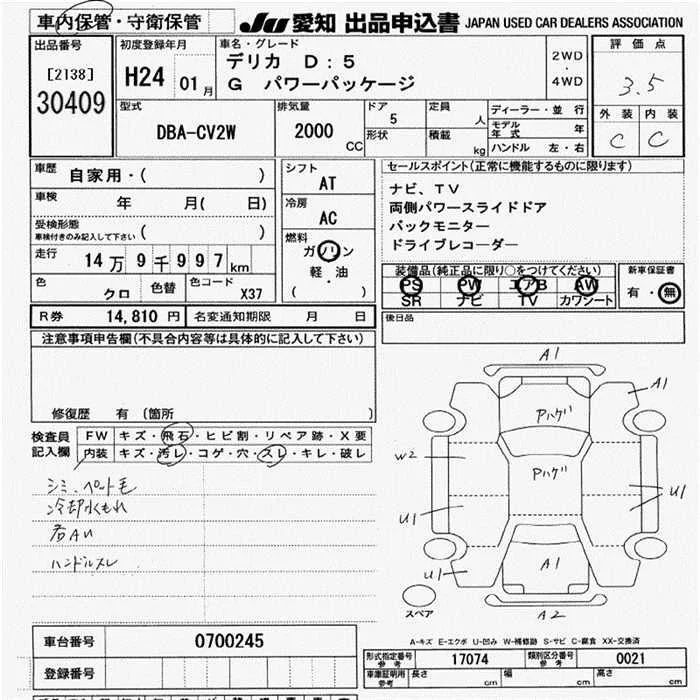 車内保管・守衛保管
JU 愛知 出品申込書 JAPAN USED CAR DEALERS ASSOCIATION
出品番号
[2138]
30409
初度登録年月
H24 01月
車名・グレード
デリカ D:5
G パワーパッケージ
2WD
・
4WD
評価点
3.5
外装 内装
C C
型式
DBA-CV2W
排気量
2000 CC
ドア
5
形状
定員
人
積載
kg
ディーラー・並行
モデル年式 年
ハンドル 左・右
車歴
自家用・( )
車検
年 月( 日)
受検形態
車検付きのみ記入して下さい ( )
走行
14万9千997km
色
クロ
色替
色コード
X37
シフト
AT
冷房
AC
燃料
ガソリン
軽・油
( )
セールスポイント(正常に機能するものに限ります)
ナビ、TV
両側パワースライドドア
バックモニター
ドライブレコーダー
装備品(純正品に限り○をつけてください)
PS PW エアB AW
SR ナビ TV カワシート
新車保証書
有・無
後日品
R券 14,810 円 名変通知期限 月 日
注意事項申告欄(不具合内容等は具体的に記入して下さい)
修復歴 有 (箇所 )
検査員
記入欄
FW キズ・飛石・ヒビ割・リペア跡・X要
内装 キズ・汚レ・コゲ・穴・スレ・キレ・破レ
シミ、ペット毛
冷却水もれ
ハンドルスレ
A1
A1
Pハゲ
W2
Pハゲ
U1
U1
U1
A1
A2
スペア
A-キズ E-エクボ U-凹み W-補修跡 S-サビ C-腐食 XX-交換済
車台番号 0700245
登録番号
形式指定番号 参考 17074 類別区分番号 参考 0021
車庫証明用 参考 長さ cm 幅 cm 高さ cm